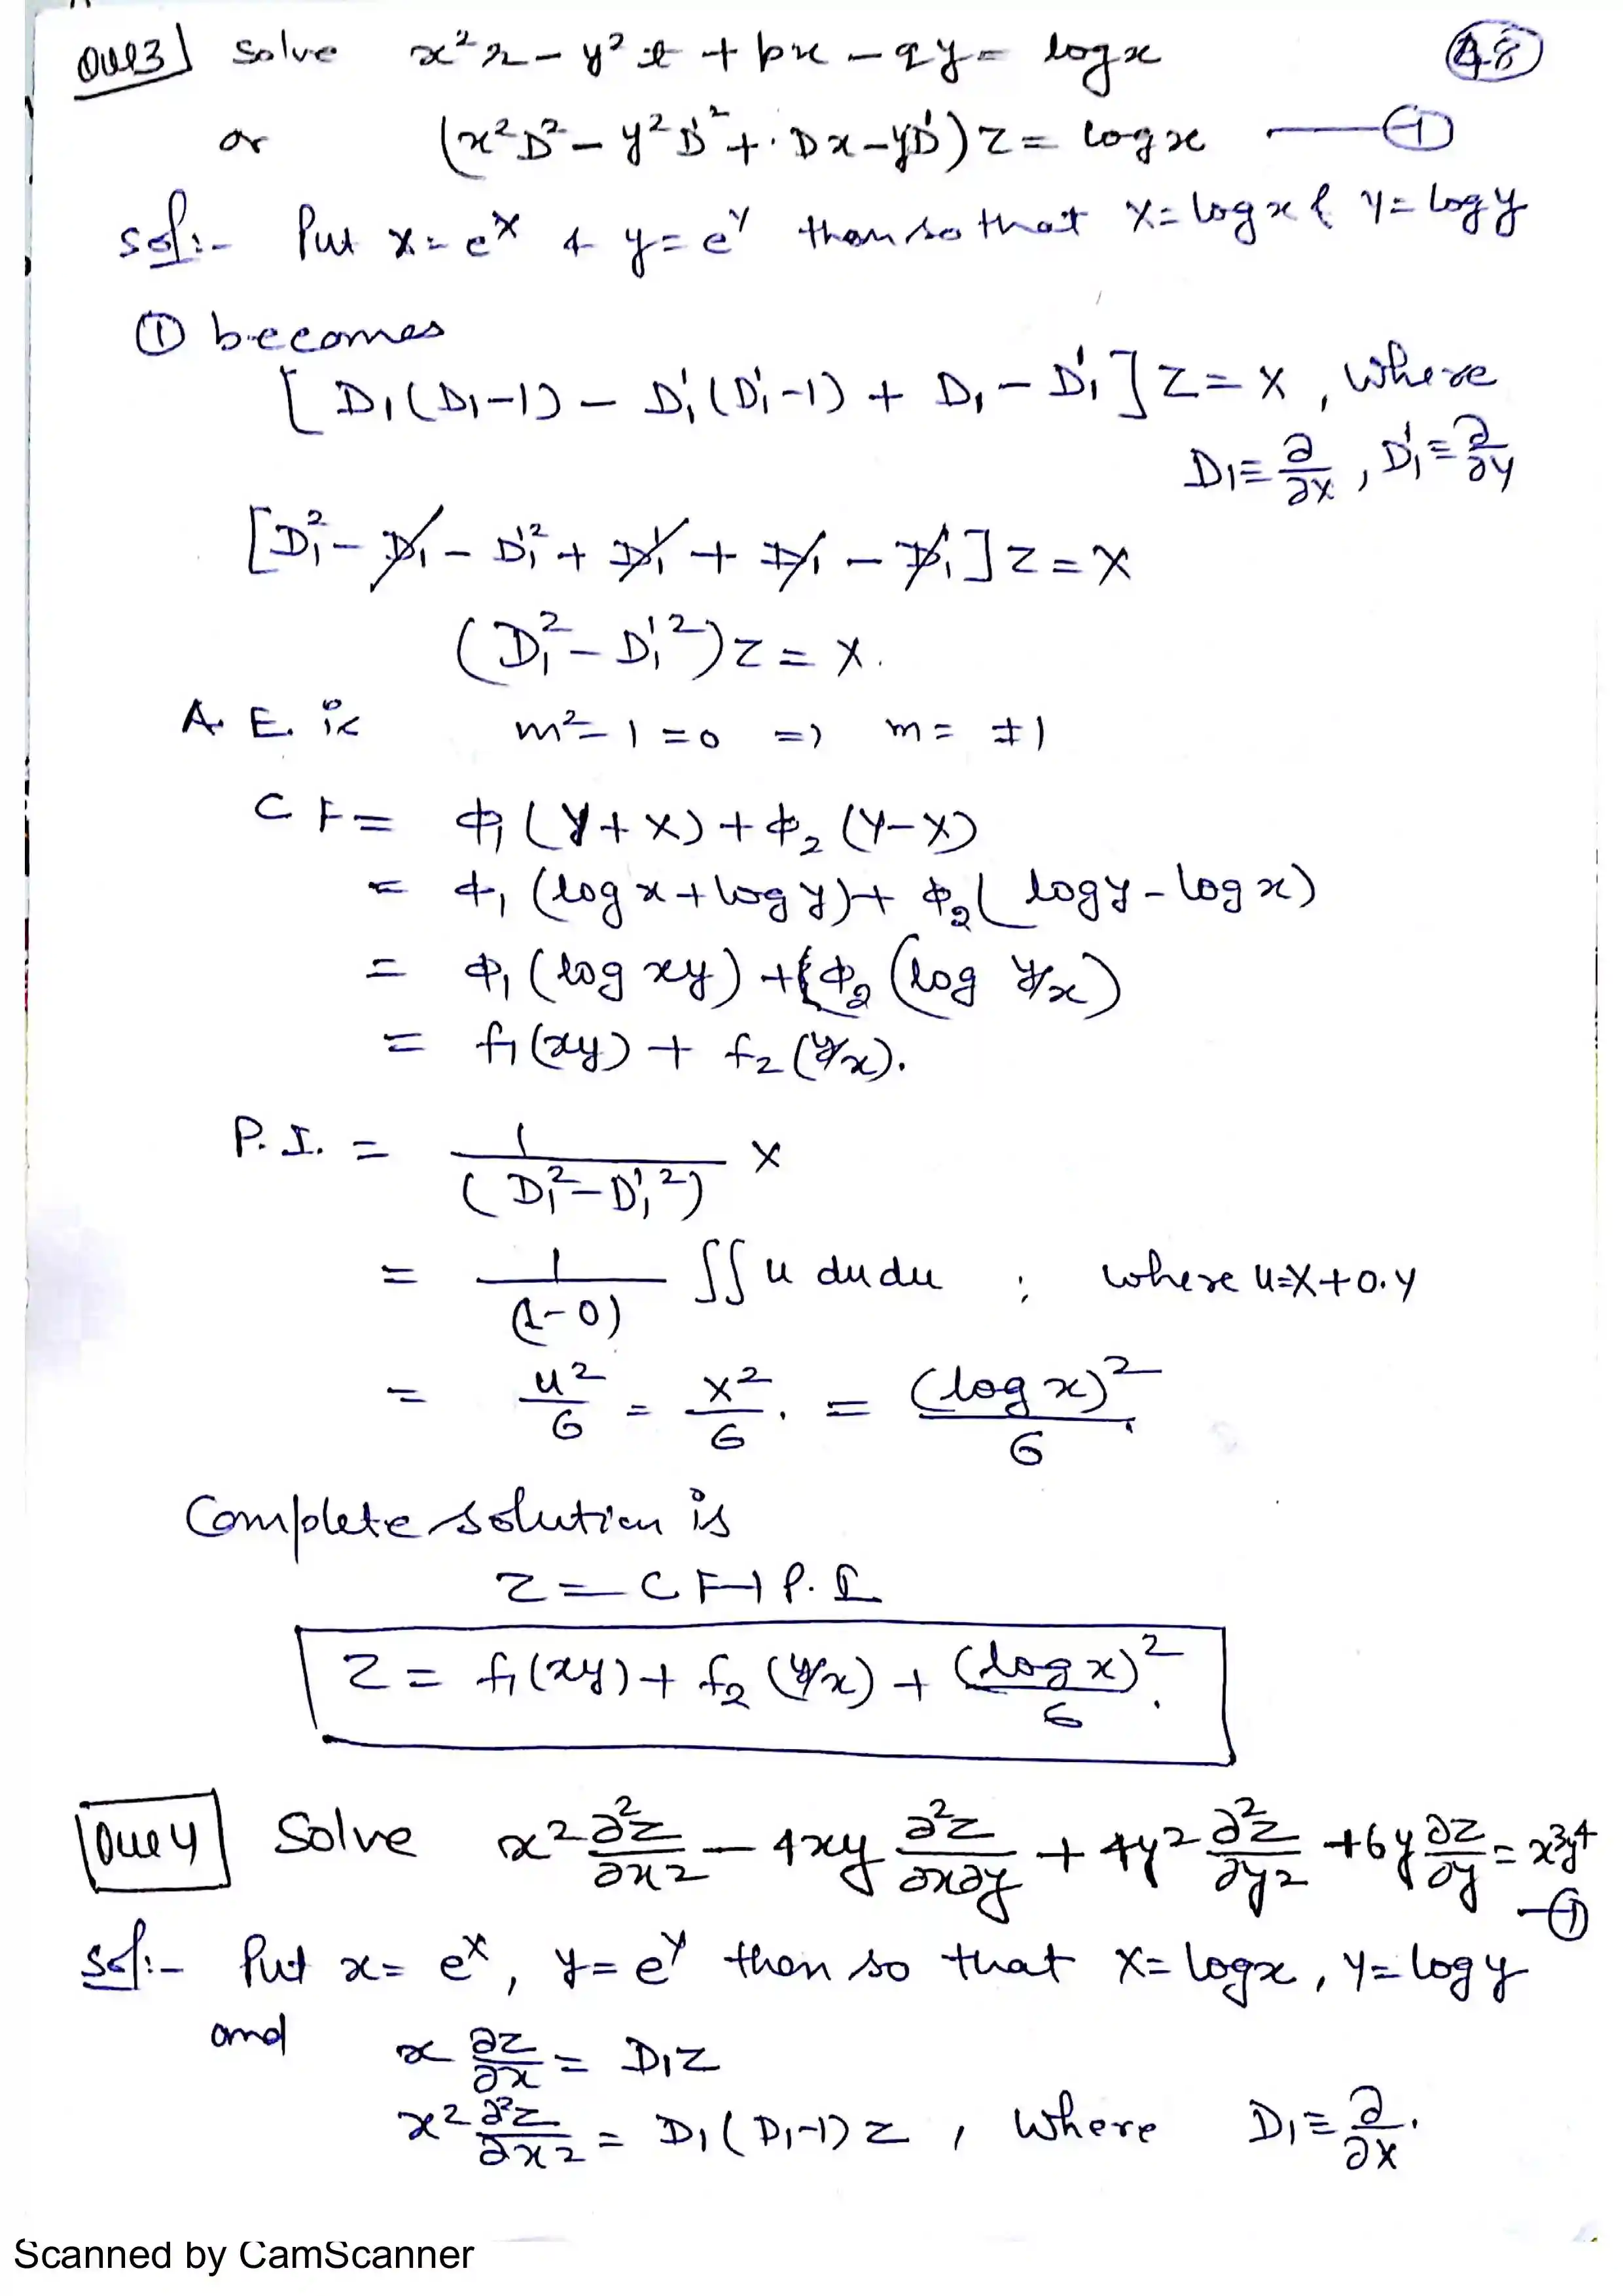 Que3] Solve x²r - y²t + px - qy = logx (48)
or (x²D² - y²D'² + Dx - yD')z = logx —①
Sol:- Put x = e^X & y = e^Y then so that X = logx & Y = logy
① becomes
[D₁(D₁-1) - D₁'(D₁'-1) + D₁ - D₁']z = X, where
D₁ ≡ ∂/∂X, D₁' ≡ ∂/∂Y
[D₁² - D₁ - D₁'² + D₁' + D₁ - D₁']z = X
(D₁² - D₁'²)z = X.
A.E. is m² - 1 = 0 => m = ±1
CF = φ₁(Y+X) + φ₂(Y-X)
= φ₁(logx + logy) + φ₂(logy - logx)
= φ₁(log xy) + φ₂(log y/x)
= f₁(xy) + f₂(y/x).
P.I. = 1/(D₁² - D₁'²) X
= 1/(1-0) ∫∫ u du du ; where u = X + 0.Y
= u²/6 = X²/6. = (log x)²/6.
Complete solution is
Z = CF + P.I
Z = f₁(xy) + f₂(y/x) + (log x)²/6.
Que4 Solve x² ∂²z/∂x² - 4xy ∂²z/∂x∂y + 4y² ∂²z/∂y² + 6y ∂z/∂y = x³y⁴
—①
Sol:- Put x = e^X, y = e^Y then so that X = logx, Y = logy
and x ∂z/∂x = D₁z
x² ∂²z/∂x² = D₁(D₁-1)z, where D₁ ≡ ∂/∂X.
Scanned by CamScanner